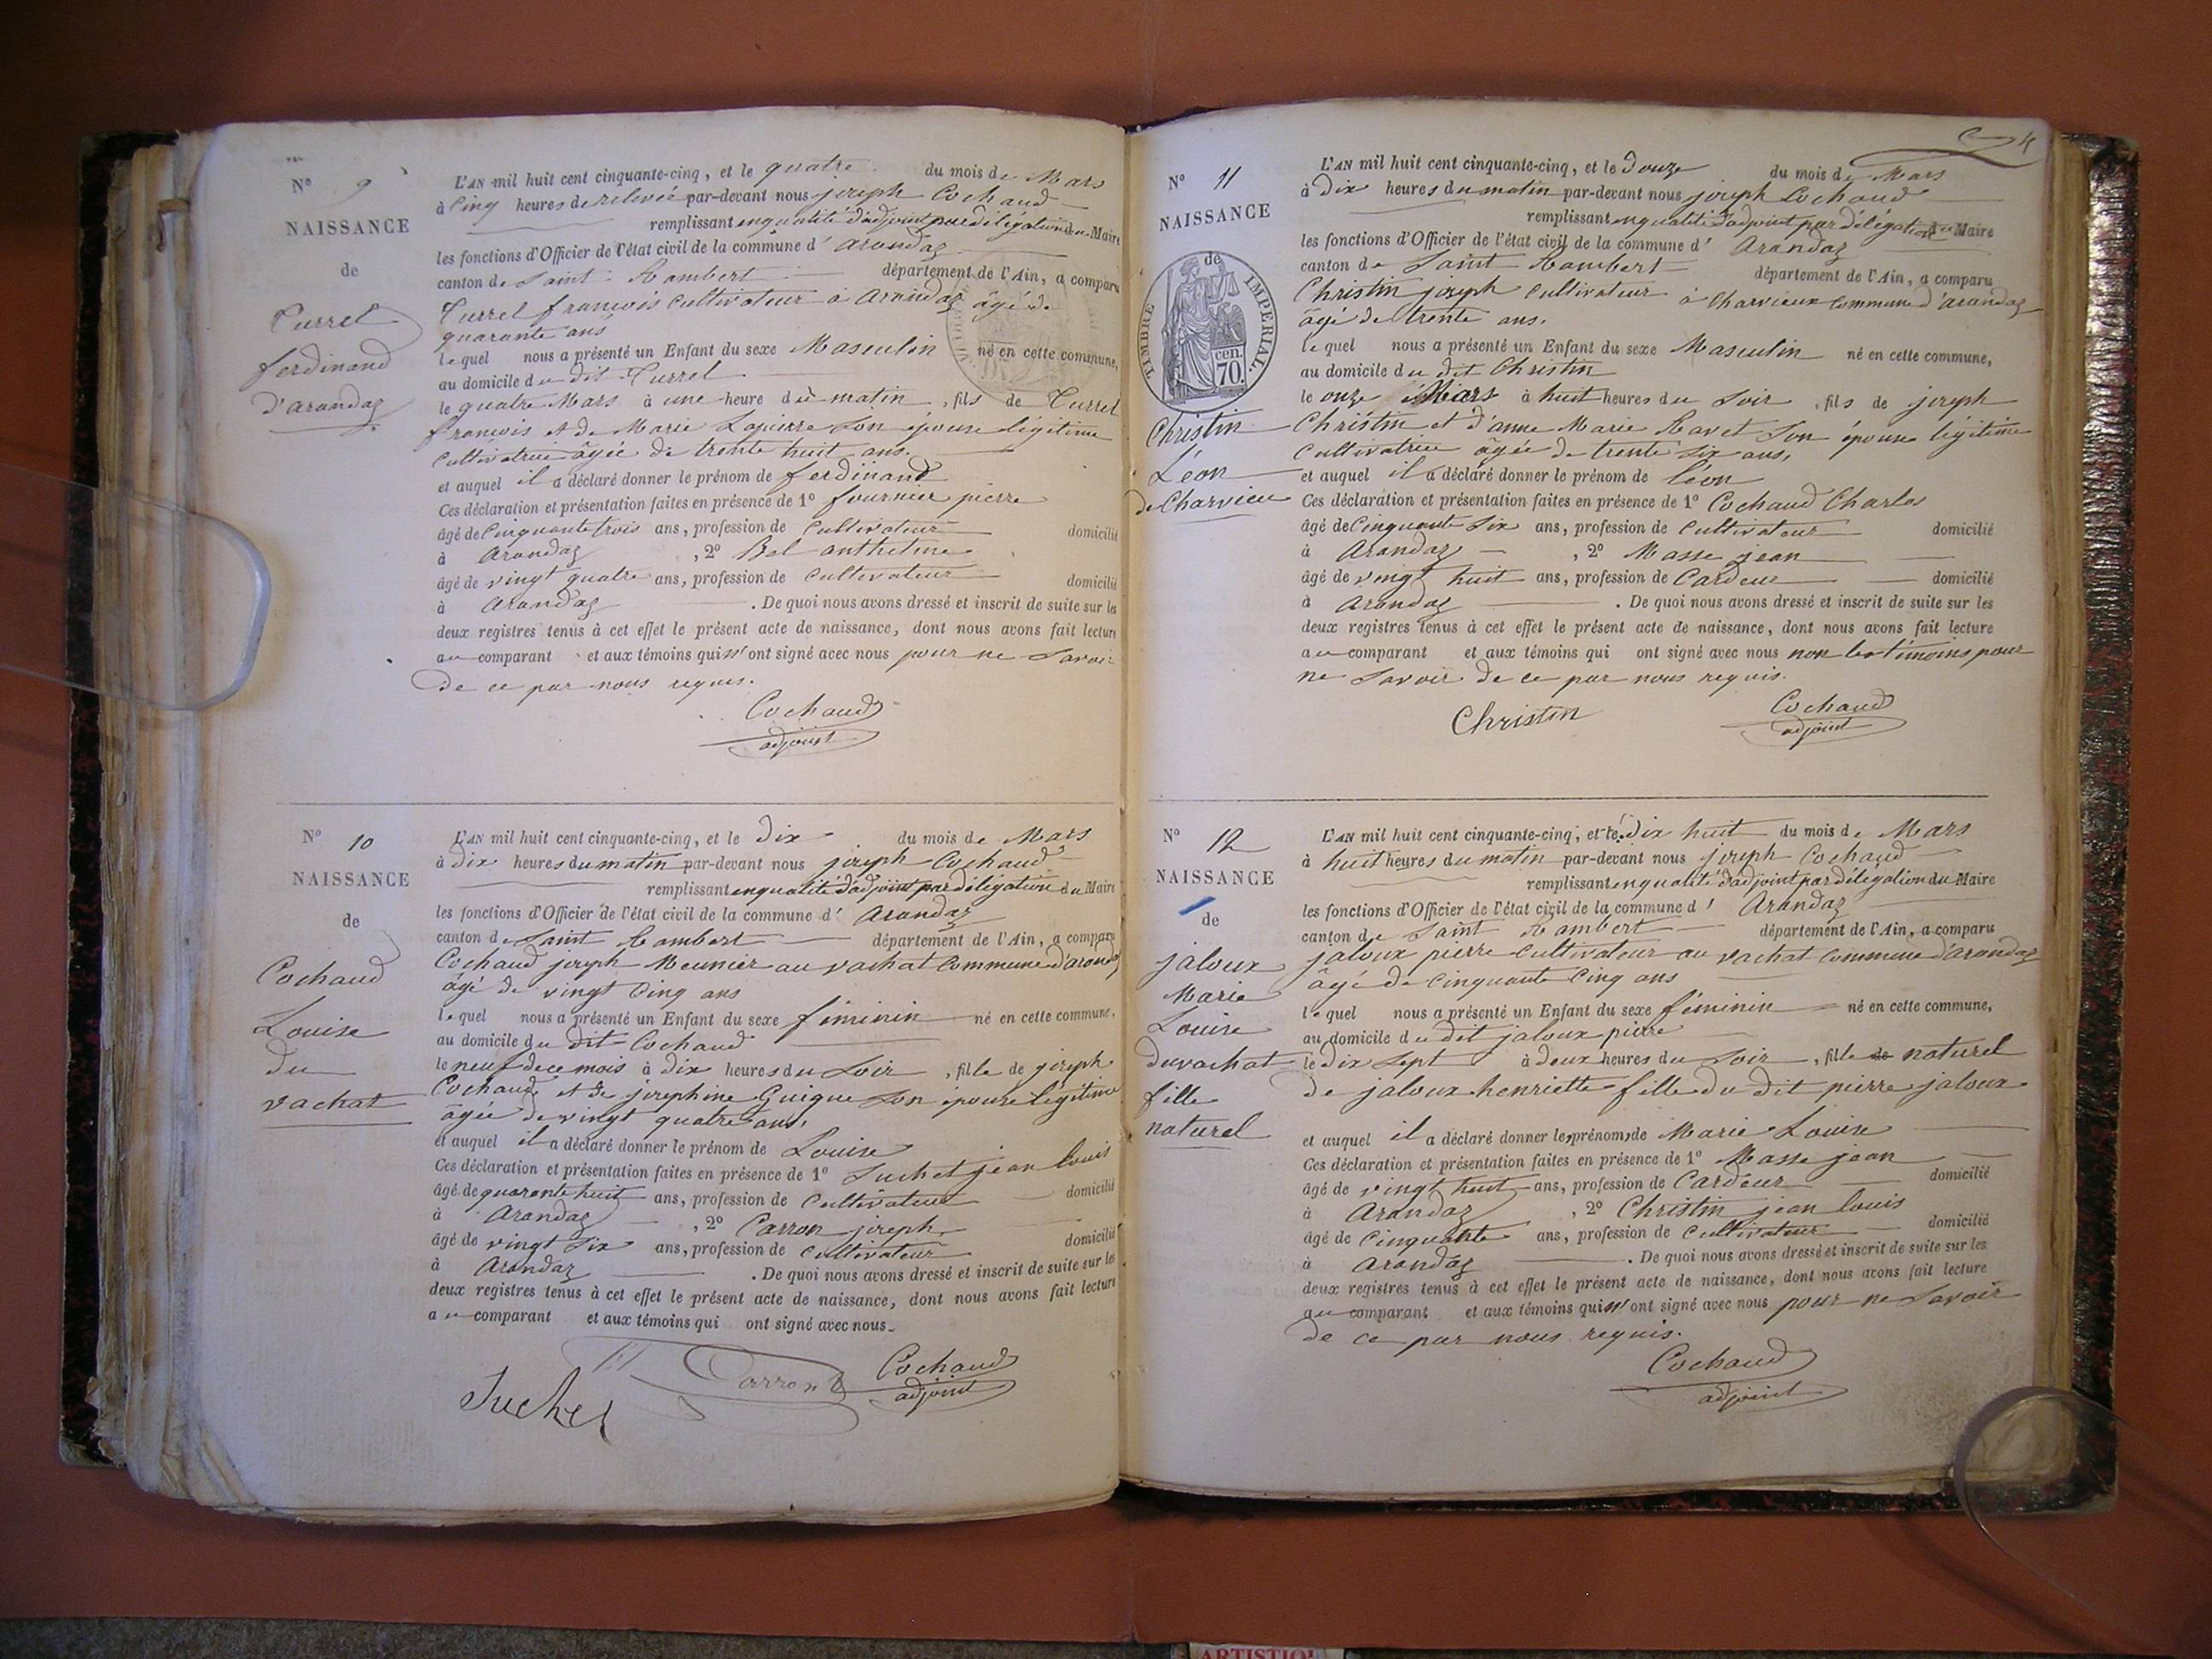 N° 9
NAISSANCE
de
Turrel
ferdinand
d'arandaz
L'AN mil huit cent cinquante-cinq, et le quatre du mois de Mars
à Cinq heures de relevée par-devant nous joseph Cochaud
remplissant en qualité d'adjoint par délégation du Maire
les fonctions d'Officier de l'état civil de la commune d' arandaz
canton de Saint Rambert département de l'Ain, a comparu
Turrel francois Cultivateur à arandaz âgé de
quarante ans
lequel nous a présenté un Enfant du sexe Masculin né en cette commune,
au domicile du dit Turrel
le quatre Mars à une heure du matin, fils de Turrel
francois et de Marie Lapierre Son épouse légitime
Cultivatrice âgée de trente huit ans.
et auquel il a déclaré donner le prénom de ferdinand
Ces déclaration et présentation faites en présence de 1° fournier pierre
âgé de Cinquante trois ans, profession de Cultivateur domicilié
à Arandaz, 2° Bel anthelme
âgé de vingt quatre ans, profession de Cultivateur domicilié
à Arandaz. De quoi nous avons dressé et inscrit de suite sur les
deux registres tenus à cet effet le présent acte de naissance, dont nous avons fait lecture
au comparant et aux témoins qui n'ont signé avec nous pour ne Savoir
De ce par nous requis.
Cochaud
adjoint
N° 10
NAISSANCE
de
Cochaud
Louise
du
vachat
L'AN mil huit cent cinquante-cinq, et le Dix du mois de Mars
à Dix heures du matin par-devant nous joseph Cochaud
remplissant en qualité d'adjoint par délégation du Maire
les fonctions d'Officier de l'état civil de la commune d' Arandaz
canton de Saint Rambert département de l'Ain, a comparu
Cochaud joseph Meunier au vachat Commune d'arandaz
âgé de vingt Cinq ans
lequel nous a présenté un Enfant du sexe féminin né en cette commune,
au domicile du dit Cochaud
le neuf de ce mois à Dix heures du Soir, fille de joseph
Cochaud et de josephine Guigue Son épouse légitime
âgée de vingt quatre ans,
et auquel il a déclaré donner le prénom de Louise
Ces déclaration et présentation faites en présence de 1° Suchet jean louis
âgé de quarante huit ans, profession de Cultivateur domicilié
à Arandaz, 2° Carron joseph
âgé de vingt Six ans, profession de Cultivateur domicilié
à Arandaz. De quoi nous avons dressé et inscrit de suite sur les
deux registres tenus à cet effet le présent acte de naissance, dont nous avons fait lecture
au comparant et aux témoins qui ont signé avec nous
Suchet Carron Cochaud
adjoint
4
N° 11
NAISSANCE
de
TIMBRE IMPERIAL
70 cen.
Christin
Léon
de Charvieu
L'AN mil huit cent cinquante-cinq, et le Douze du mois de Mars
à Dix heures du matin par-devant nous joseph Cochaud
remplissant en qualité d'adjoint par délégation du Maire
les fonctions d'Officier de l'état civil de la commune d' Arandaz
canton de Saint Rambert département de l'Ain, a comparu
Christin joseph Cultivateur à Charvieux Commune d'arandaz
âgé de trente ans.
lequel nous a présenté un Enfant du sexe Masculin né en cette commune,
au domicile du dit Christin
le onze Mars à huit heures du Soir, fils de joseph
Christin et d'anne Marie Ravet Son épouse légitime
Cultivatrice âgée de trente Six ans,
et auquel il a déclaré donner le prénom de léon
Ces déclaration et présentation faites en présence de 1° Cochaud Charles
âgé de Cinquante Six ans, profession de Cultivateur domicilié
à Arandaz, 2° Masse jean
âgé de vingt huit ans, profession de Cardeur domicilié
à Arandaz. De quoi nous avons dressé et inscrit de suite sur les
deux registres tenus à cet effet le présent acte de naissance, dont nous avons fait lecture
au comparant et aux témoins qui ont signé avec nous non les témoins pour
ne Savoir de ce par nous requis.
Christin Cochaud
adjoint
N° 12
NAISSANCE
de
jaloux
Marie
Louise
du vachat
fille
naturel
L'AN mil huit cent cinquante-cinq, et le Dix huit du mois de Mars
à huit heures du matin par-devant nous joseph Cochaud
remplissant en qualité d'adjoint par délégation du Maire
les fonctions d'Officier de l'état civil de la commune d' Arandaz
canton de Saint Rambert département de l'Ain, a comparu
jaloux pierre Cultivateur au vachat Commune d'arandaz
âgé de Cinquante Cinq ans
lequel nous a présenté un Enfant du sexe féminin né en cette commune,
au domicile du dit jaloux pierre
le dix Sept à deux heures du Soir, fille de naturel
de jaloux henriette fille du dit pierre jaloux
et auquel il a déclaré donner les prénoms de Marie Louise
Ces déclaration et présentation faites en présence de 1° Masse jean
âgé de vingt huit ans, profession de Cardeur domicilié
à Arandaz, 2° Christin jean louis
âgé de Cinquante ans, profession de Cultivateur domicilié
à Arandaz. De quoi nous avons dressé et inscrit de suite sur les
deux registres tenus à cet effet le présent acte de naissance, dont nous avons fait lecture
au comparant et aux témoins qui n'ont signé avec nous pour ne Savoir
de ce par nous requis.
Cochaud
adjoint
ARTISTIQ